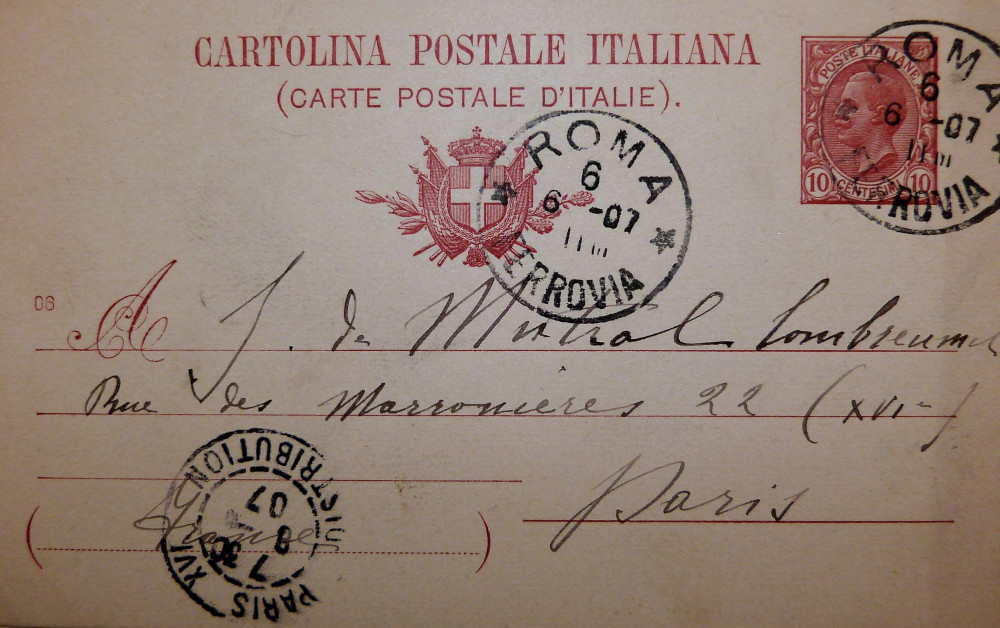 CARTOLINA POSTALE ITALIANA
(CARTE POSTALE D'ITALIE).
POSTE ITALIANE
10 CENTESIMI 10
ROMA
6
6 -07
FERROVIA
ROMA
6
6 -07
FERROVIA
06
A
J. de Mistral
Rue des Marronieres 22 (XVIe)
Paris
France
PARIS XVI DISTRIBUTION
7
8
07